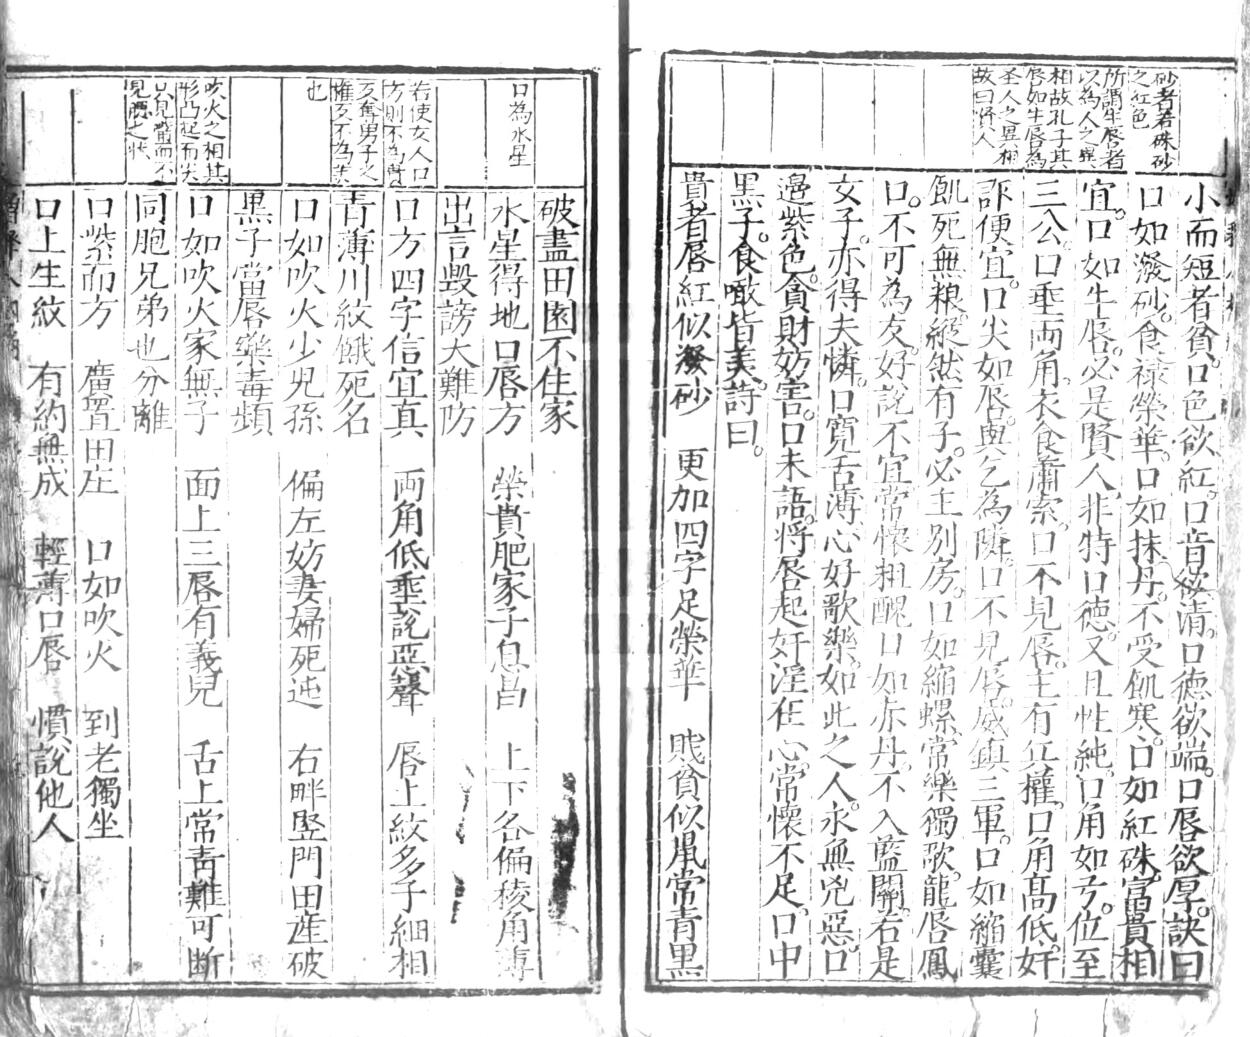 砂者若硃砂
之紅色
所謂牛唇者
以為人之異
相故孔子其
唇如牛唇為
聖人之異相
故曰賢人
小而短者貧。口色欲紅。口音欲清。口德欲端。口唇欲厚。訣曰
口如潑砂。食祿榮華。口如抹丹。不受飢寒。口如紅硃。富貴相
宜。口如牛唇。必是賢人。非特口德。又且性純。口角如弓。位至
三公。口垂両角。衣食蕭索。口不見唇。主有兵權。口角高低。奸
詐便宜。口尖如唇。與乞為隣。口不見唇。威鎮三軍。口如縮囊
飢死無粮。縱然有子。必主別房。口如縮螺。常樂獨歌。龍唇鳳
口。不可為友。好說不宜。常懷粗醜。口如赤丹。不入藍關。若是
女子。亦得夫憐。口寬舌薄。心好歌樂。如此之人。永無凶惡。口
邊紫色。貪財妨害。口未語。將唇起。奸淫在心。常懷不足。口中
黑子。食噉皆美。詩曰。
貴者唇紅似潑砂　更加四字足榮華　貧似鼠常青黑
口為水星
若使女人口
方則不為貴
惟
也
吹火之相其
形凸起而尖
只見齒而不
見唇之狀
破盡田園不住家
水星得地口唇方　榮貴肥家子息昌　上下各偏稜角薄
出言毀謗大難防
口方四字信宜真　両角低垂說惡聲　唇上紋多子細相
青薄川紋餓死名
口如吹火少兒孫　偏左妨妻婦死迍　右畔竪門田產破
黑子當唇樂毒頻
口如吹火家無子　面上三唇有義兒　舌上常青難可断
同胞兄弟也分離
口紫而方　廣置田庄　口如吹火　到老獨坐
口上生紋　有約無成　輕薄口唇　慣說他人